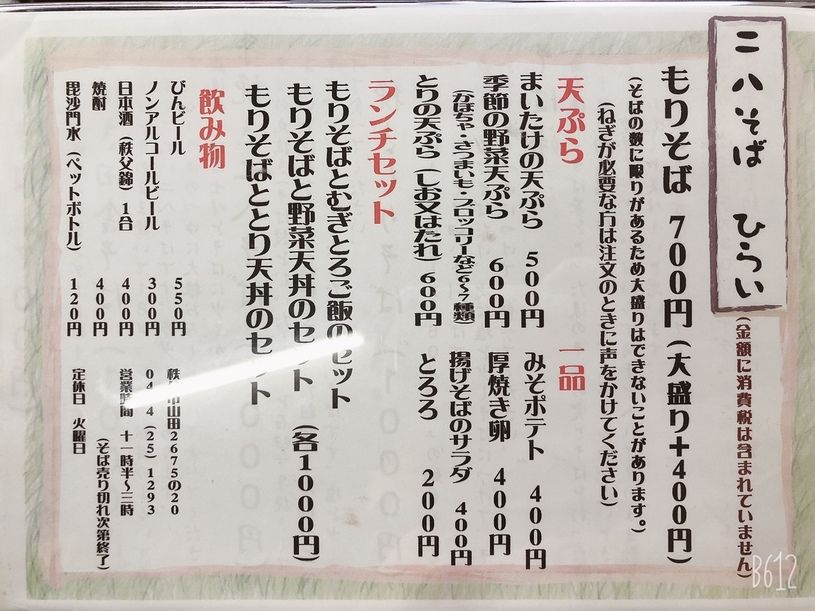 二八そば ひらい
(金額に消費税は含まれていません)
もりそば 700円(大盛り+400円)
(そばの数に限りがあるため大盛りはできないことがあります。
(ねぎが必要な方は注文のときに声をかけてください)
天ぷら
まいたけの天ぷら 500円
季節の野菜天ぷら 600円
(かぼちゃ・さつまいも・ブロッコリーなど6~7種類)
とりの天ぷら(しお又はたれ) 600円
一品
みそポテト 400円
厚焼き卵 400円
揚げそばのサラダ 400円
とろろ 200円
ランチセット
もりそばとむぎとろご飯のセット
もりそばと野菜天丼のセット (各1000円)
もりそばととり天丼のセット
飲み物
びんビール 550円
ノンアルコールビール 300円
日本酒(秩父錦)1合 400円
焼酎 400円
毘沙門水(ペットボトル) 120円
秩父市山田2675の20
0494(25)1293
営業時間 十一時半~三時
(そば売り切れ次第終了)
定休日 火曜日
B612